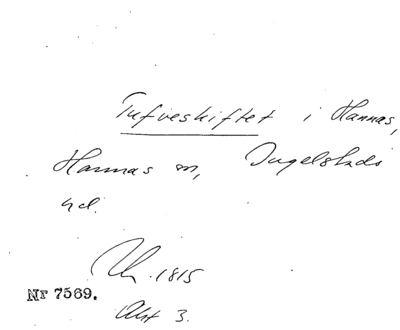 Tufveskiftet i Hannas,
Hannas sn, Ingelstads
hd.
Uk. 1815
Nr 7569.
Akt 3.